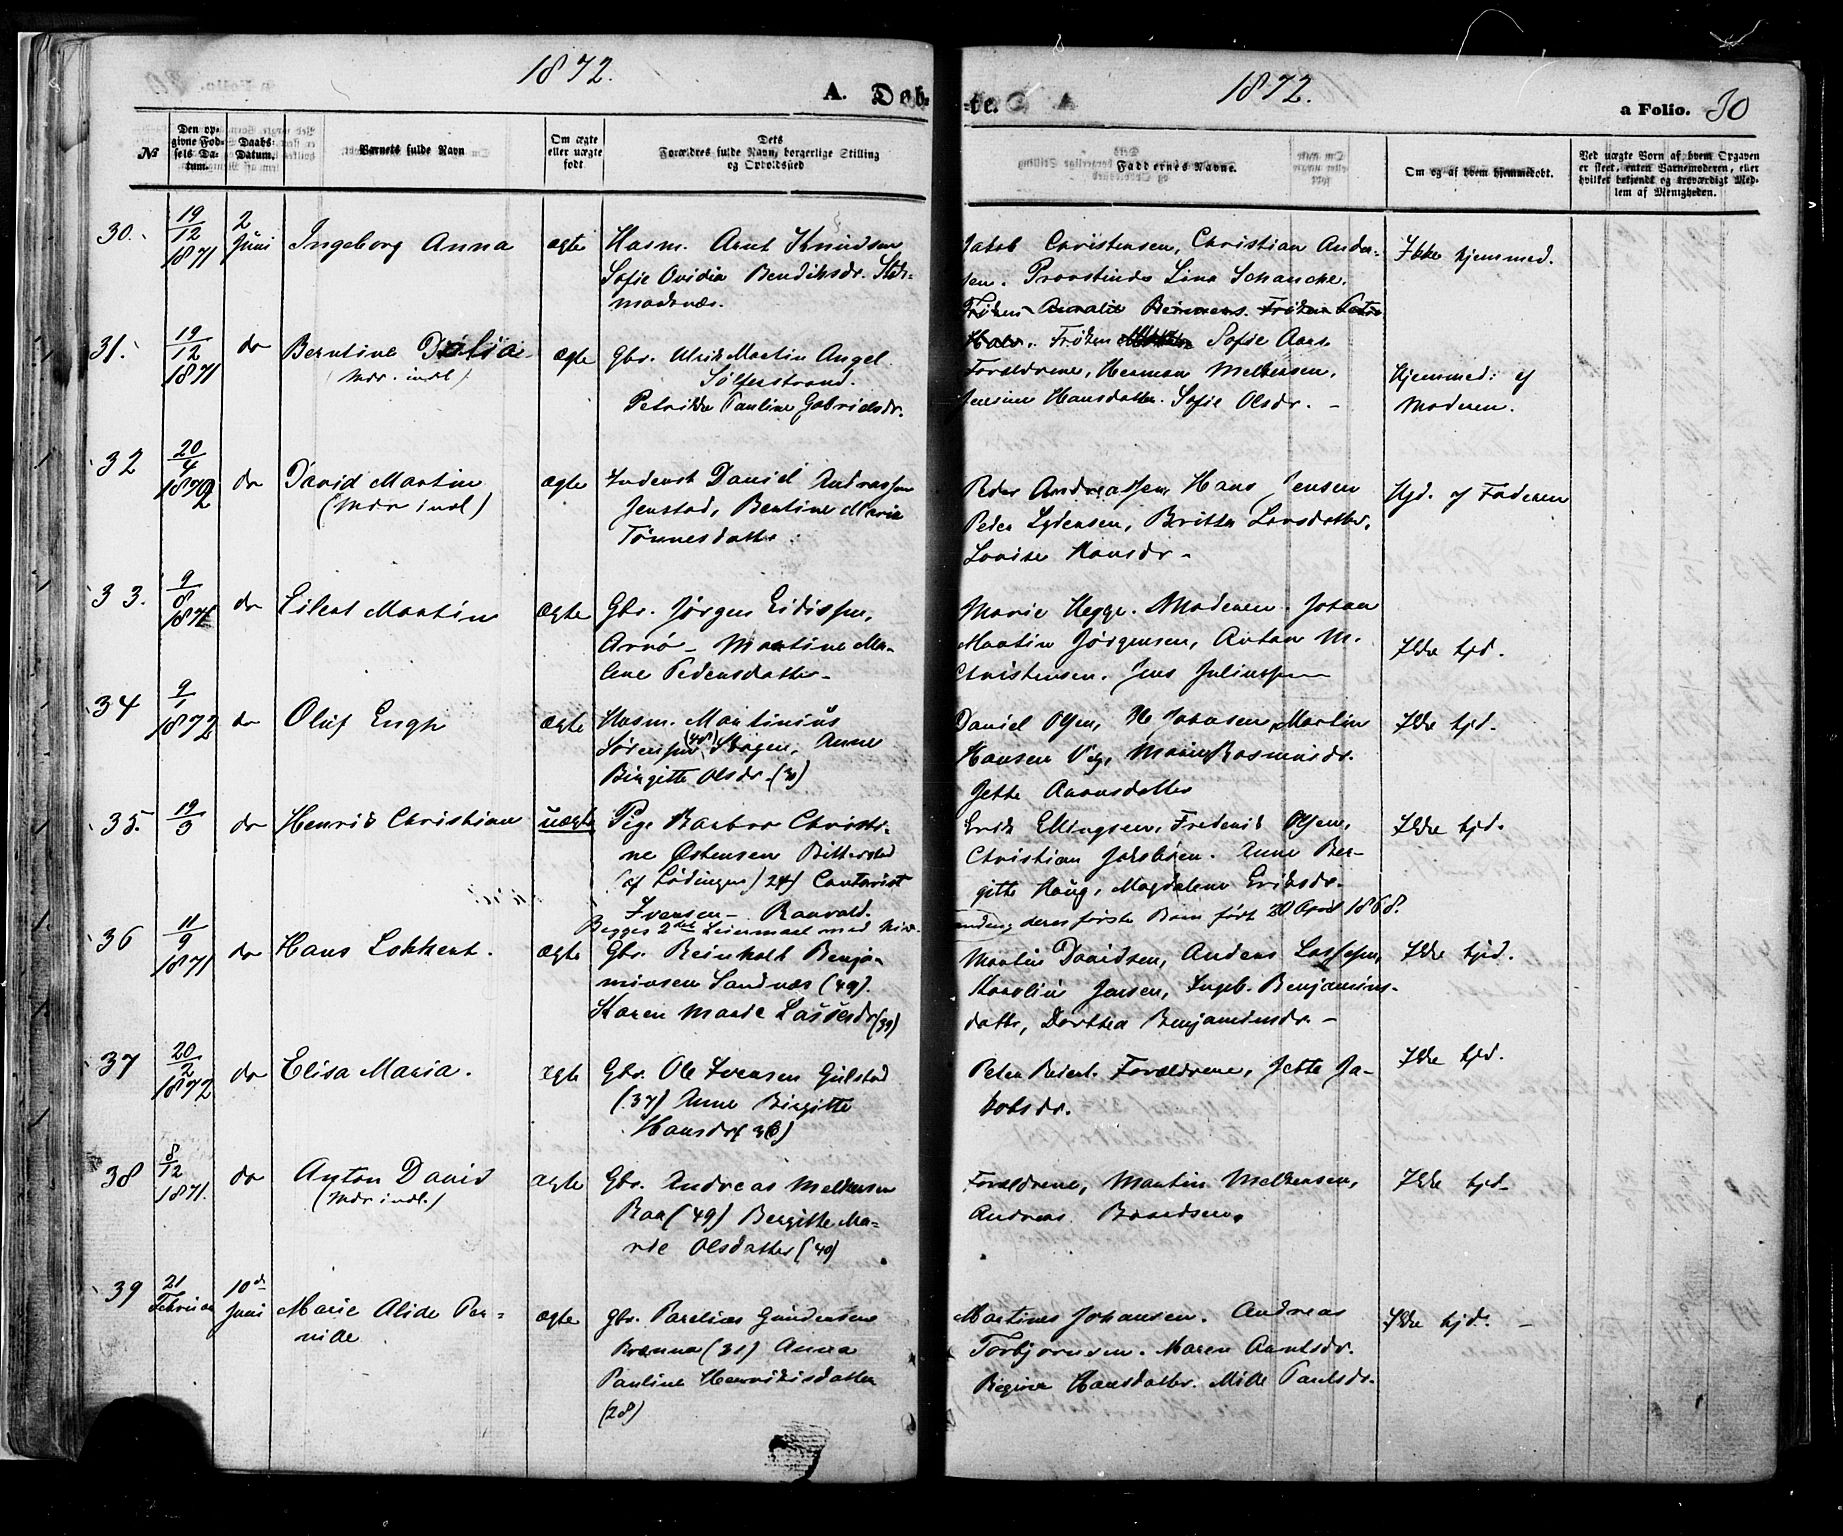 1872.
A. Døb-
1872.
-te.
a Folio. 30
№
Den op-
givne Fød-
sels Da-
tum.
Daabs
Datum.
Barnets fulde Navn
Om ægte
eller uægte
født.
Dets
Forældres fulde Navn, borgerlige Stilling
og Opholdssted
Faddernes Navne.
Om og af hvem hjemmedøbt.
Ved uægte Børn af hvem Opgaven
er skeet, enten Barnemoderen, eller
hvilket bekjendt og troværdigt Med-
lem af Menigheden.
30. 19/12 1871 2 Juni Ingeborg Anna ægte Husm. Arnt Knudsen
Sofie Ovidia Bendiksdr.
Jakob Christensen, Christian Ander-
sen. Provstinde Lina Schanche.
Frøken Sofie Aars
Ikke hjemmed.
31. 19/12 1871 do Berntine
(Mdr. indl)
ægte Gbr. Ulrik Martin Angel
Sølferstrand.
Petrikke Pauline Gabrielsdr.
Forældrene, Herman Melkersen,
Jensine Hansdatter. Sofie Olsdr. -
Hjemmed: af
Moderen.
32 20/4 1872 do David Martin
(Mdr indl)
ægte Inderst Daniel Andreassen
Jenstad, Bentine Marie
Tønnesdatter
Peder Andreassen, Hans Jensen
Peder Lydersen, Britta Larsdatter,
Lovise Hansdr -
Hjd. af Faderen
33. 9/8 1871 do Eilert Martin ægte Gbr. Jørgen Eidissen,
Arnø - Martine Ma-
lene Pedersdatter -
Marie Hegge. Moderen. Johan
Martin Jørgensen, Anton M.
Christensen. Jens Juliussen
Ikke hjd.
34 9/1 1872 do Oluf Engh ægte Husm. Martinius
Sørensen (48) Skogen, Anne
Birgitte Olsdr.
Daniel Olsen, H Johnsen, Martin
Hansen Vig, Maria Rasmusdr.
Jette Aronsdatter
Ikke hjd.
35. 19/3 do Henrik Christian uægte Pige Barbro Christi-
ne Østensen Bitterstad
(af Lødingen) 24) Contorist
Iversen - Ranvald.
Begges 2det Leiermaal med hin-
Erik Ellingsen, Frederik Olsen,
Christian Jakobsen. Anne Ber-
gitte Haug, Magdalene Eriksdr.
anden, deres første Barn født 20 April 1868.
Ikke hjd.
36 11/9 1871 do Hans Lokkert. ægte Gbr. Reinholt Benja-
minsen Sandnæs (49).
Karen Marie Lassesdr (39)
Martin Davidsen, Anders Lassesen,
Karolius Jensen, Ingb. Benjamins-
datter, Dorthea Benjaminsdr. -
Ikke hjd.
37 20/2 1872 do Elisa Maria. ægte Gbr. Ole Iversen Gulstad
(37) Anne Birgitte
Hansdr( 36)
Peter Reiert. Forældrene, Jette Ja-
kobsdr.
Ikke hjd.
38 8/12 1871. do Anton David
(Mdr indl.)
ægte Gbr. Andreas Melkersen
Raa (49) Bergitte Ma-
rie Olsdatter (40)
Forældrene, Martin Melkersen,
Andreas Baardsen.
Ikke hjd.
39 21 Februar 10de Juni Marie Alide Per-
nille
ægte Gbr. Parelius Gundersen
Brenna (31) Anna
Pauline Henrikisdatter
(28)
Martines Johansen. Andreas
Torbjørnsen. Maren Arntsdr.
Regine Hansdatter. Mille Paulsdr.
Ikke hjd. -